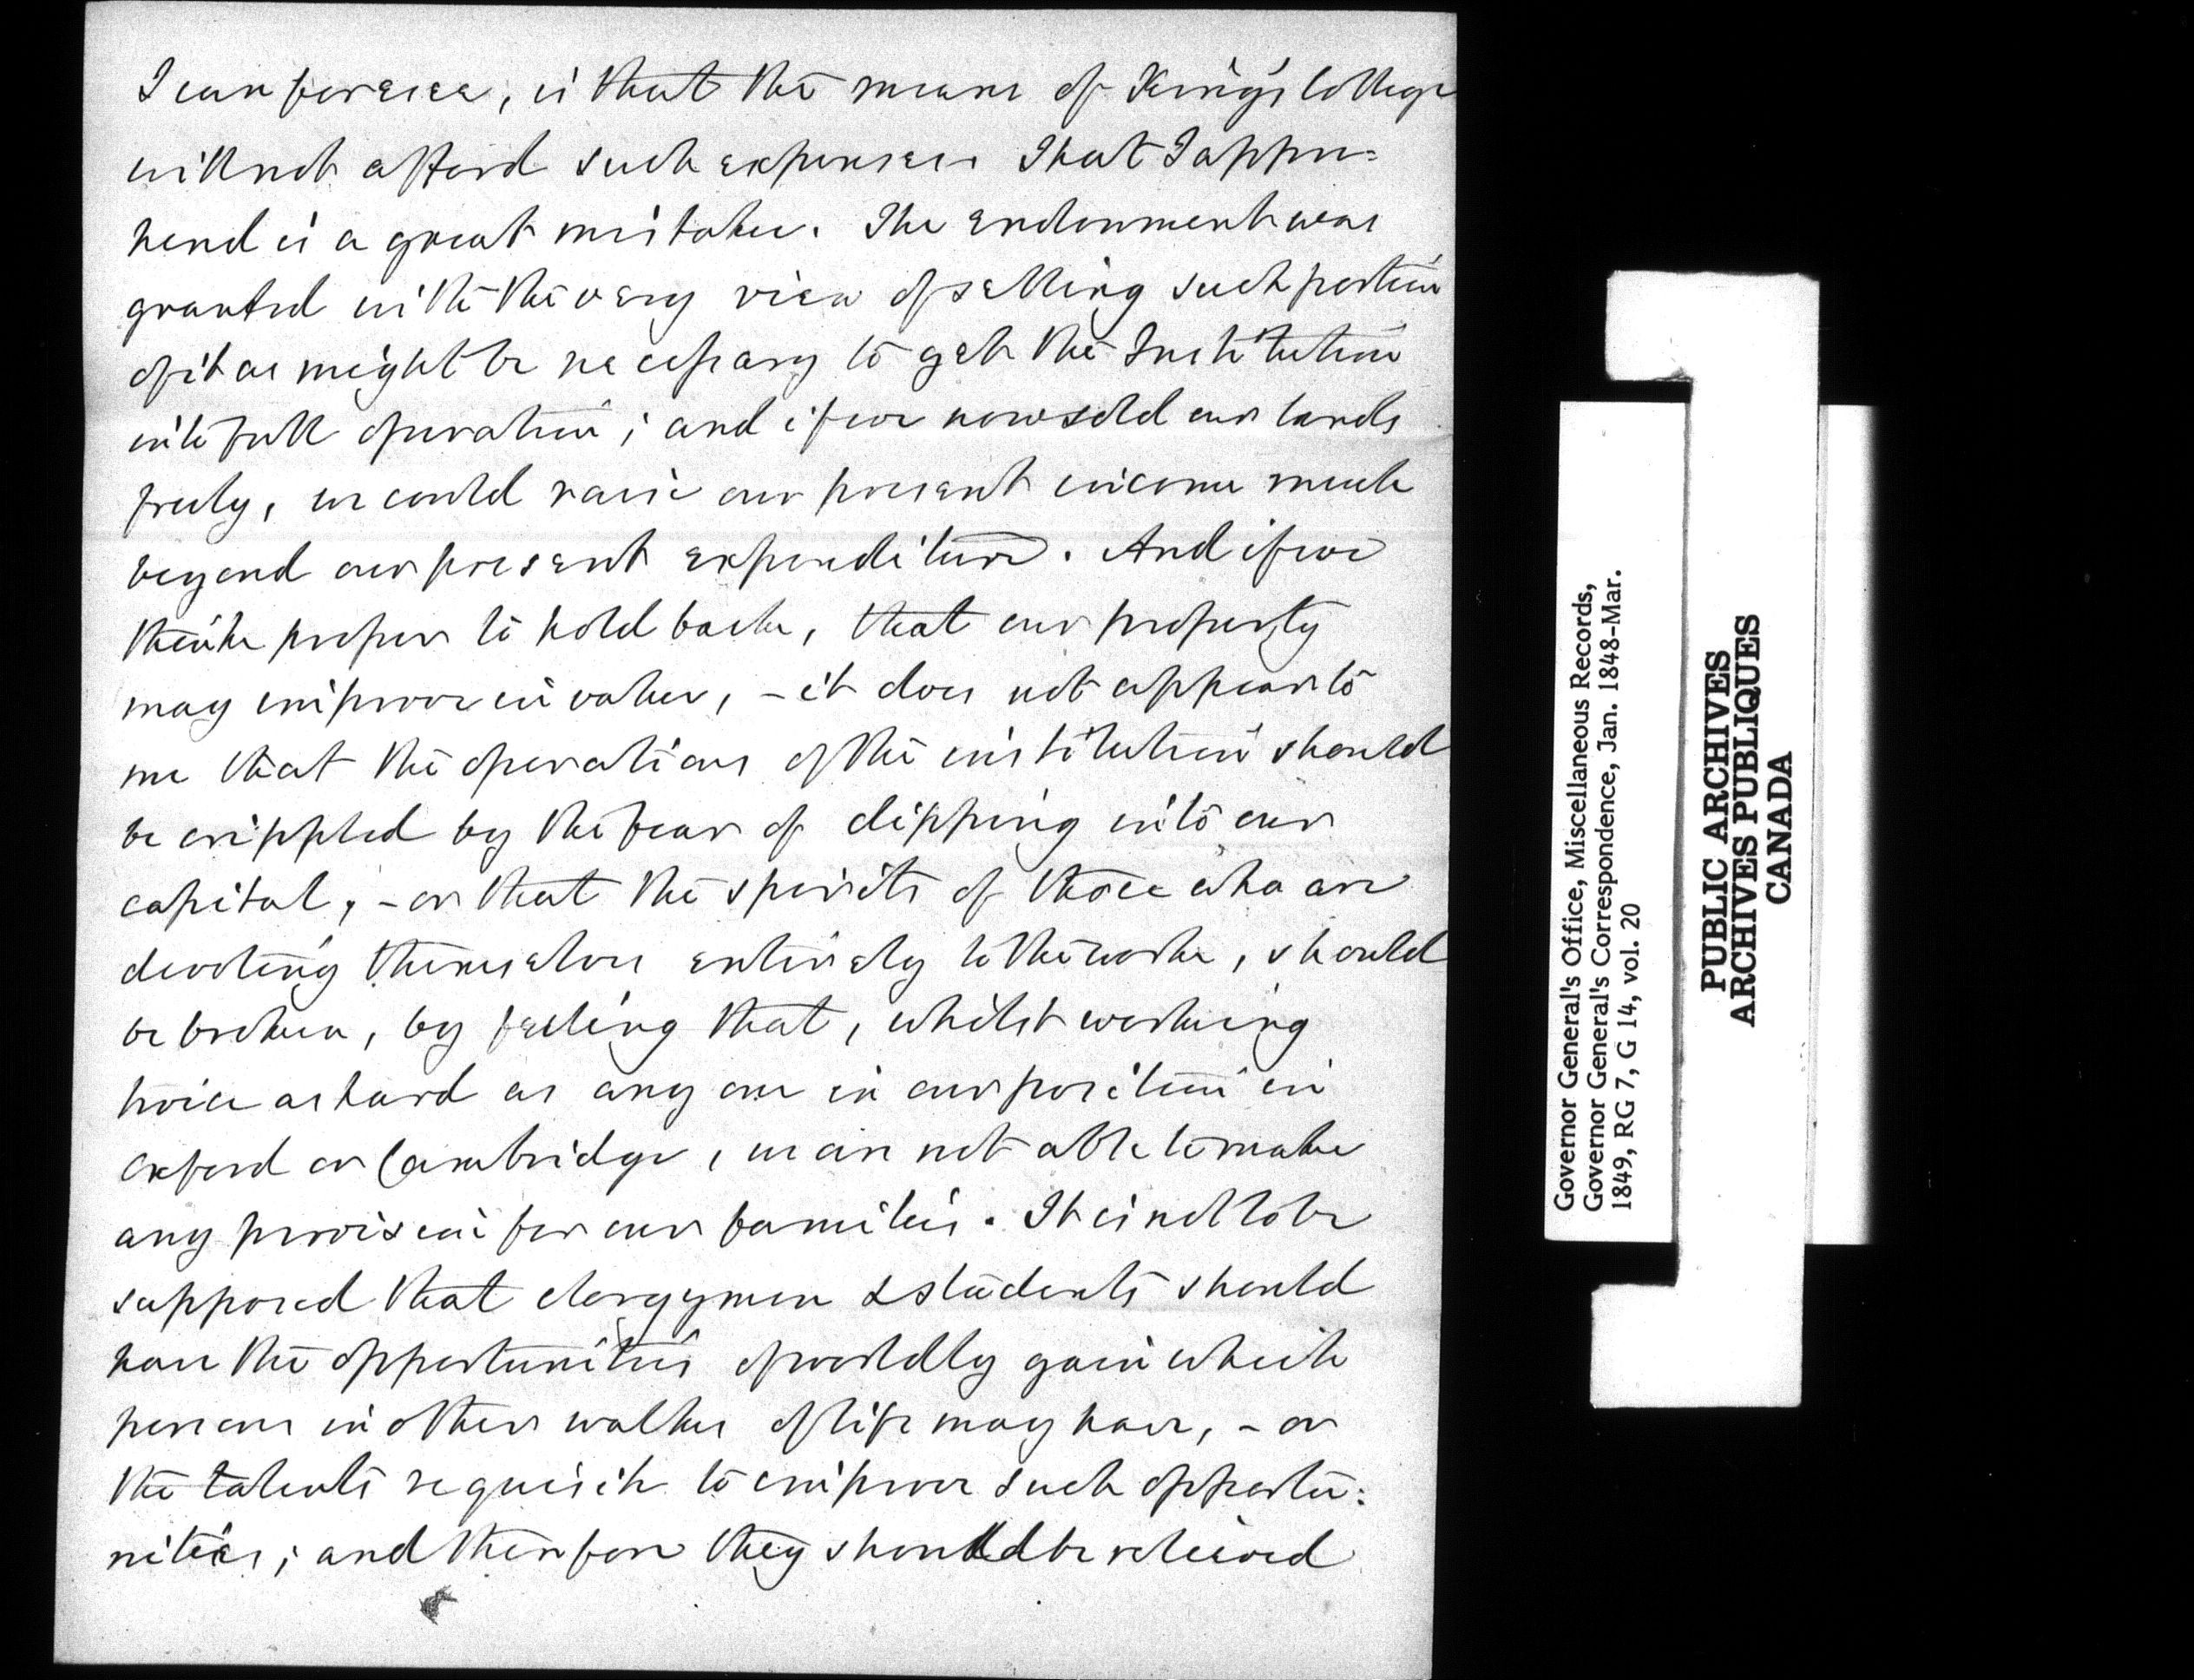 I can foresee, is that the means of King's College
will not afford such expenses. That I appre=
hend is a great mistake. The endowment was
granted with the very view of selling such portion
of it as might be necessary to get the Institution
into full operation; and if we now sold our lands
freely, we could raise our present income much
beyond our present expenditure. And if we
think proper to hold back, that our property
may improve in value, – it does not appear to
me that the operations of the institution should
be crippled by the fear of dipping into our
capital, – or that the spirits of those who are
devoting themselves entirely to the work, should
be broken, by feeling that, whilst working
twice as hard as any one in our position in
Oxford or Cambridge, we are not able to make
any provision for our families. It is not to be
supposed that clergymen & students should
have the opportunities of worldly gain which
persons in other walks of life may have, – or
the talents requisite to improve such opportu=
nities; and therefore they should be relieved
Governor General's Office, Miscellaneous Records,
Governor General's Correspondence, Jan. 1848-Mar.
1849, RG 7, G 14, vol. 20
PUBLIC ARCHIVES
ARCHIVES PUBLIQUES
CANADA